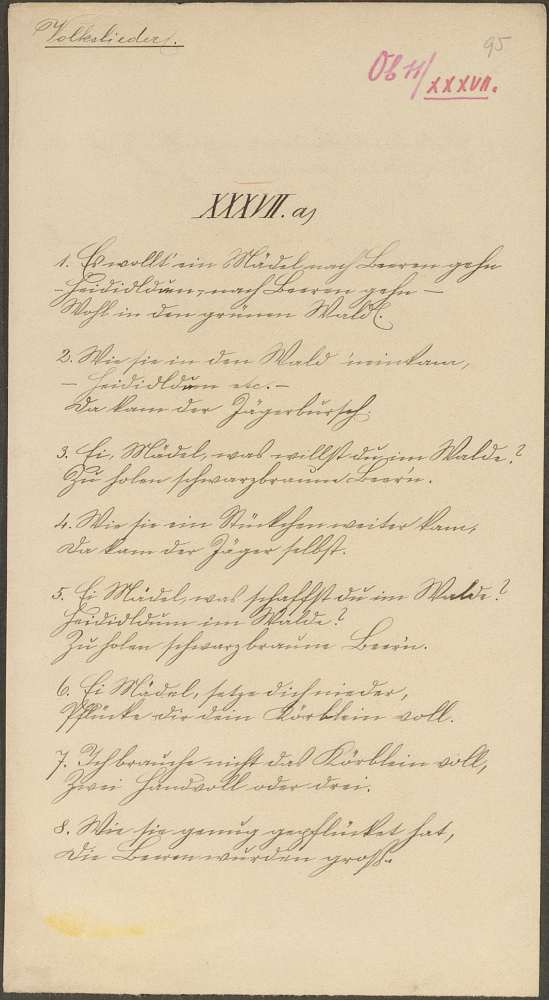 Volkslieder.
95
Ob 11/
XXXVII.
XXXVII. a)
1. Es wollt' ein Mädel nach Beeren gehn
– Heididldum, nach Beeren gehn –
Wohl in den grünen Wald.
2. Wie sie in den Wald 'neinkam,
– Heididldum etc. –
Da kam der Jägerbursch.
3. Ei, Mädel, was willst du im Walde?
Zu holen schwarzbraune Beer'n.
4. Wie sie ein Stückchen weiter kam,
Da kam der Jäger selbst.
5. Ei Mädel, was schaffst du im Walde?
Heididldum im Walde?
Zu holen schwarzbraune Beer'n.
6. Ei Mädel, setze dich nieder,
Pflücke dir dein Körblein voll.
7. Ich brauche nicht das Körblein voll,
Zwei Handvoll oder drei.
8. Wie sie genug gepflücket hat,
Die Beeren wurden groß.